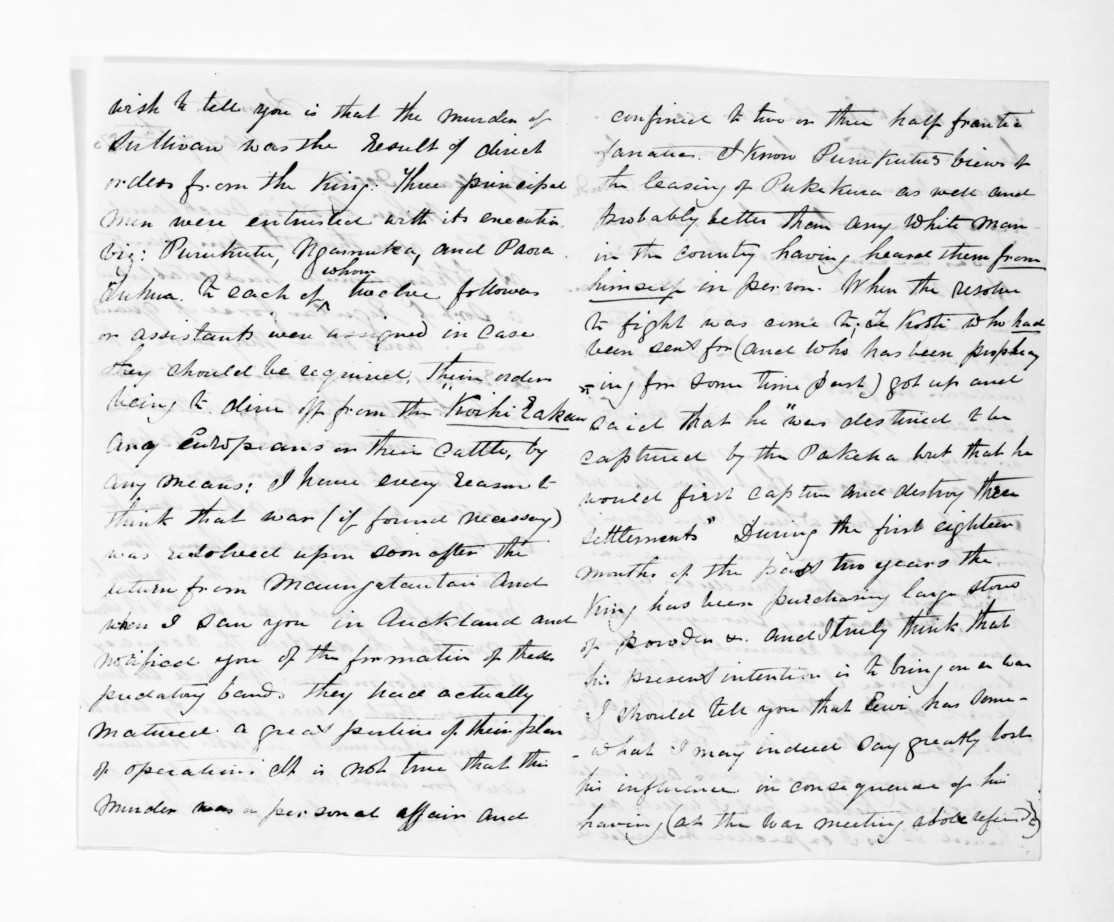 wish to tell you is that the murder of
Sullivan was the result of direct
orders from the King: Three principal
men were entrusted with its execution
viz: Purukutu, Ngamuka, and Paora
Tukua. To each of whom twelve followers
or assistants were assigned in case
they should be required, their orders
being to drive off from the "Roihi Eakau
any Europeans or their cattle, by
any means; I have every reason to
think that war (if found necessary)
was resolved upon soon after the
return from Maungatautari and
when I saw you in Auckland and
notified you of the formation of these
predatory bands they had actually
matured a great portion of their plan
of operations It is not true that this
murder was a personal affair and
confined to two or three half frantic
fanatics. I know Purukutu's views of
the leasing of Pukekura as well and
probably better than any white man
in the country having heard them from
himself in person. When the resolve
to fight was come to, Te Kooti who had
been sent for (and who has been prophecy
-ing for some time past) got up and
said that he "was destined to be
captured by the Pakeha but that he
would first capture and destroy three
settlements" During the first eighteen
months of the past two years the
King has been purchasing large stores
of powder &. and I truly think that
his present intention is to bring on a war
I should tell you that Rewi has some-
-what I may indeed say greatly lost
his influence in consequence of his
having (at the war meeting above referred to)